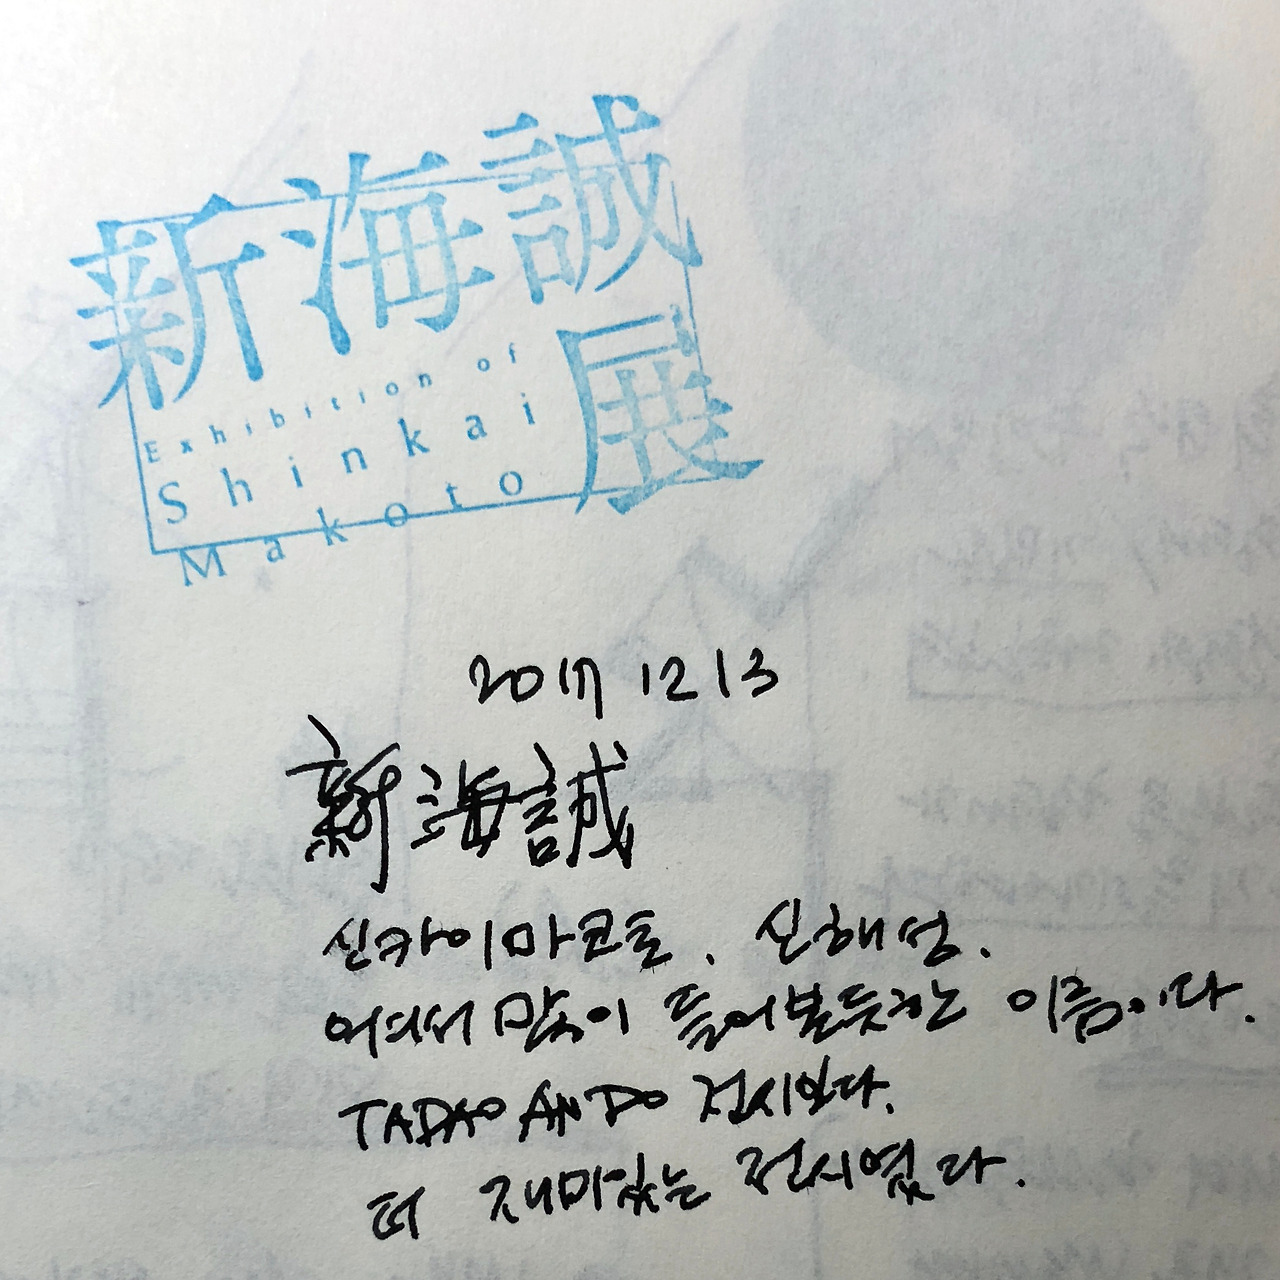 新海誠
展
Exhibition of
Shinkai
Makoto
2017 12 13
新海誠
신카이마코토. 신해성.
어디서 많이 들어본듯한 이름이다.
TADAO ANDO 전시보다.
더 재미있는 전시였다.